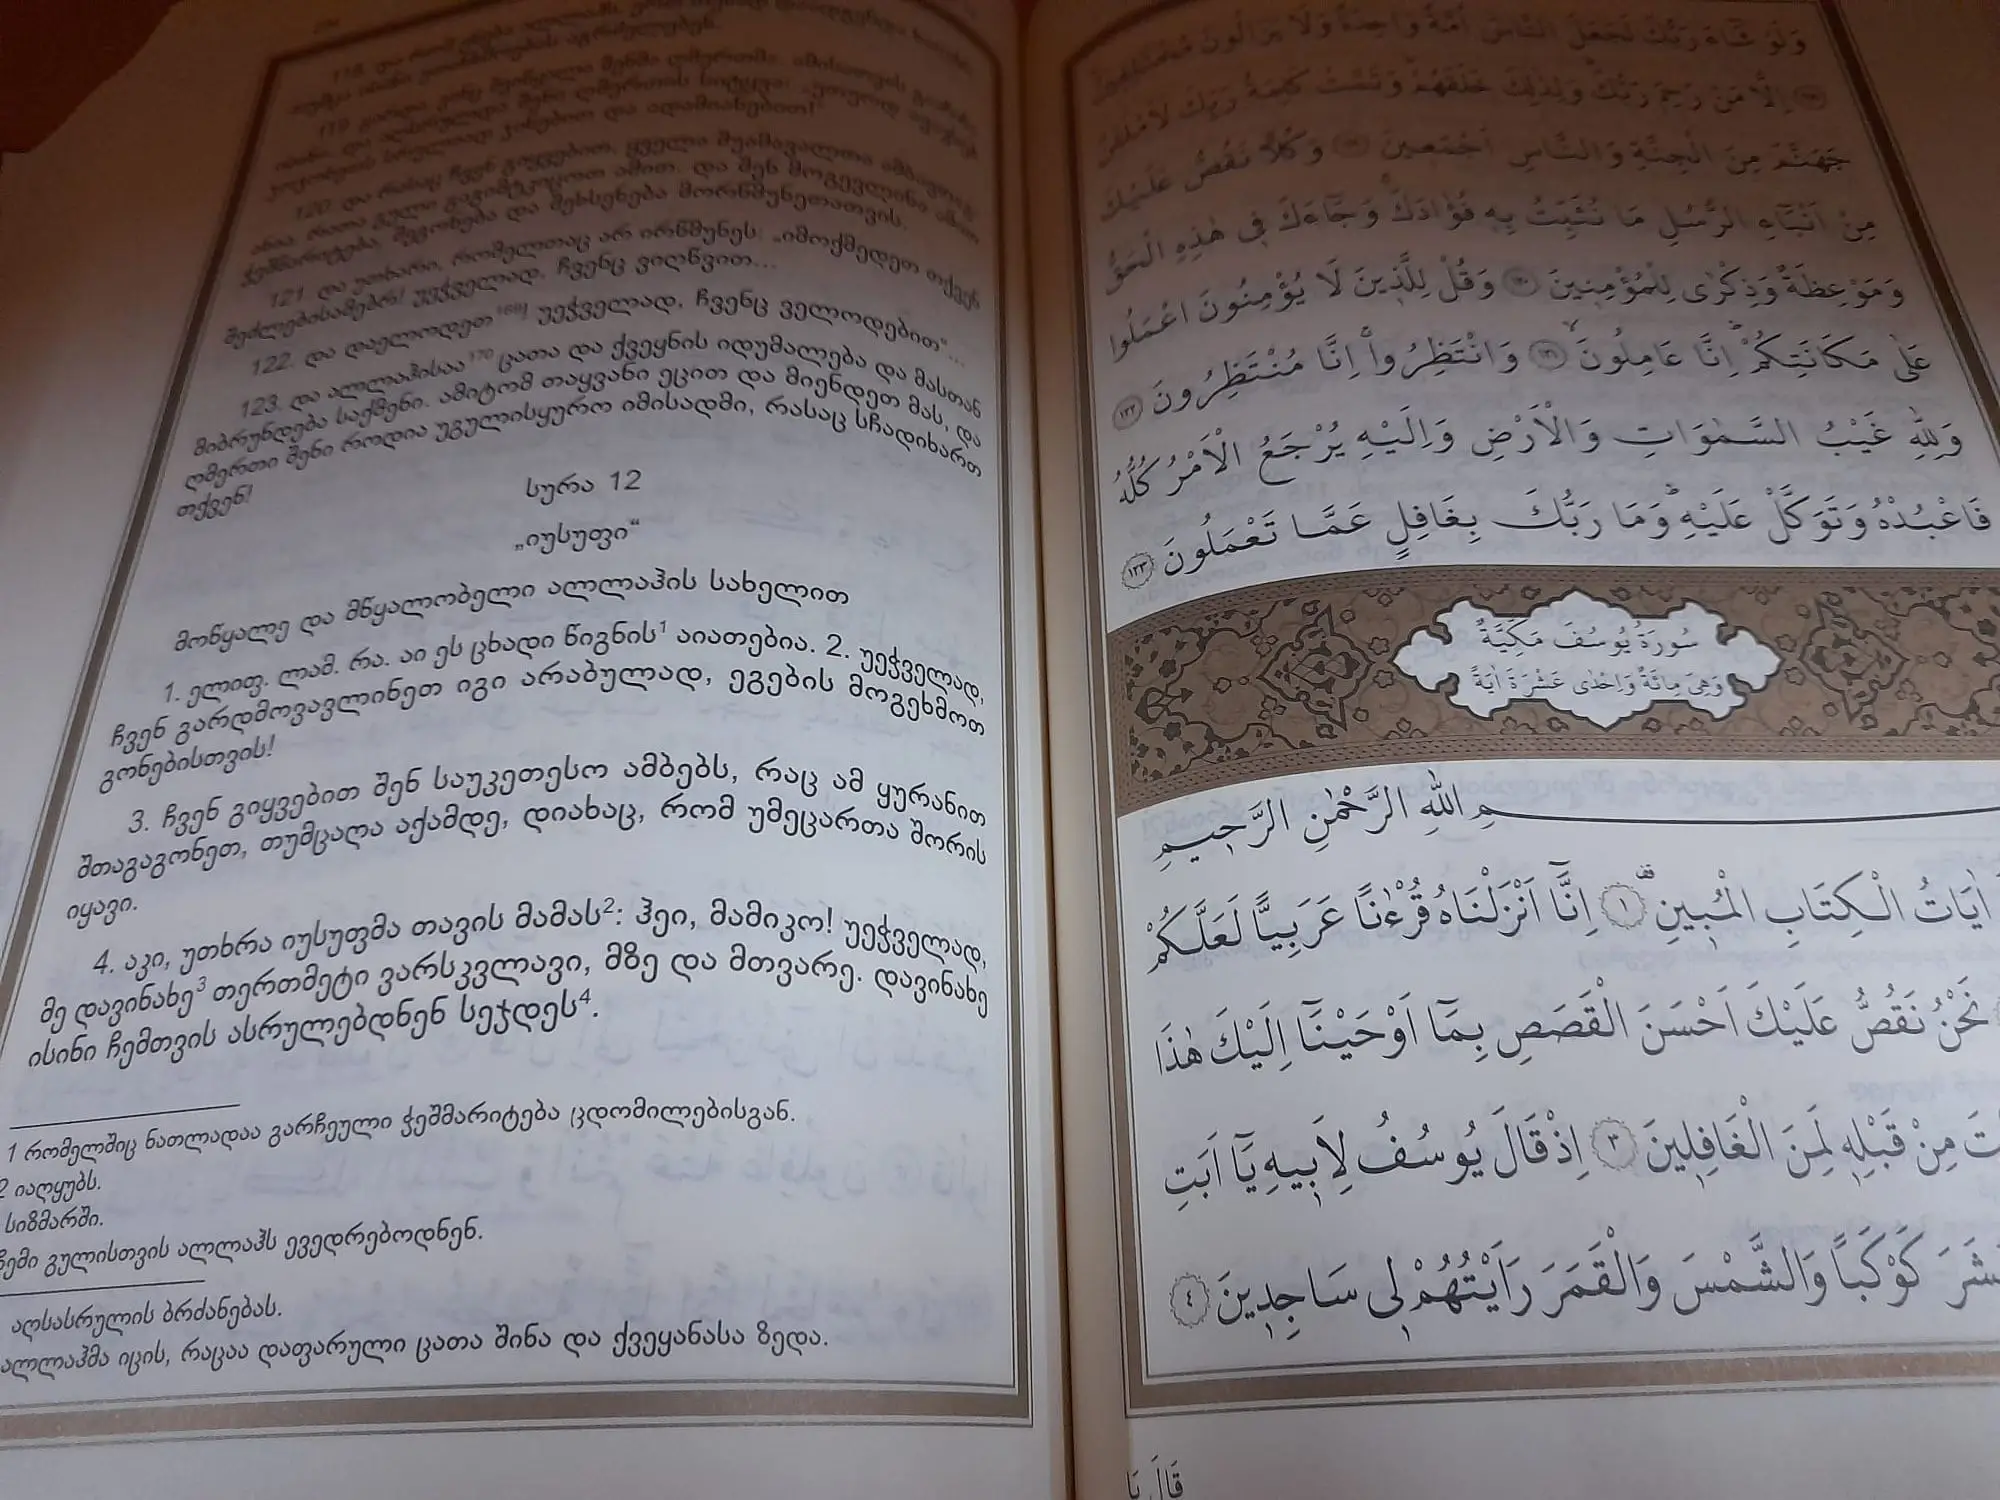 118. და რომ
119. გარდა
იყავნ. და აღსრულდა შენი ღმერთის სიტყვა:
ჯოჯოხეთს სრულიად ჯინებით და ადამიანებით!
120. და რასაც ჩვენ გიყვებით, ყველა შუამავალთა ამბავთაგ-
ანაა, რათა გული გაგიმტკიცოთ ამით. და შენ მოგევლინა ამით
ჭეშმარიტება, შეგონება და შეხსენება მორწმუნეთათვის.
121. და უთხარი, რომელთაც არ ირწმუნეს: „იმოქმედეთ თქვენ
შეძლებისამებრ! უეჭველად, ჩვენც ვიღწვით...
122. და დაელოდეთ169! უეჭველად, ჩვენც ველოდებით“...
123. და ალლაჰისაა170 ცათა და ქვეყნის იდუმალება და მასთან
მიბრუნდება საქმენი. ამიტომ თაყვანი ეცით და მიენდეთ მას, და
ღმერთი შენი როდია უგულისყურო იმისადმი, რასაც სჩადიხართ
თქვენ!
სურა 12
„იუსუფი“
მოწყალე და მწყალობელი ალლაჰის სახელით
1. ელიფ. ლამ. რა. აი ეს ცხადი წიგნის1 აიათებია. 2. უეჭველად,
ჩვენ გარდმოვავლინეთ იგი არაბულად, ეგების მოგეხმოთ
გონებისთვის!
3. ჩვენ გიყვებით შენ საუკეთესო ამბებს, რაც ამ ყურანით
შთაგაგონეთ, თუმცაღა აქამდე, დიახაც, რომ უმეცართა შორის
იყავი.
4. აკი, უთხრა იუსუფმა თავის მამას2: ჰეი, მამიკო! უეჭველად,
მე დავინახე3 თერთმეტი ვარსკვლავი, მზე და მთვარე. დავინახე
ისინი ჩემთვის ასრულებდნენ სეჯდეს4.
1 რომელშიც ნათლადაა გარჩეული ჭეშმარიტება ცდომილებისგან.
2 იაღყუბს.
სიზმარში.
ჩემი გულისთვის ალლაჰს ევედრებოდნენ.
აღსასრულის ბრძანებას.
ალლაჰმა იცის, რაცაა დაფარული ცათა შინა და ქვეყანასა ზედა.
وَلَوْ شَاءَ رَبُّكَ لَجَعَلَ النَّاسَ اُمَّةً وَاحِدَةً وَلَا يَزَالُونَ مُخْتَلِفِينَ
اِلَّا مَنْ رَحِمَ رَبُّكَ وَلِذٰلِكَ خَلَقَهُمْ وَتَمَّتْ كَلِمَةُ رَبِّكَ لَاَمْلَـَٔنَّ
جَهَنَّمَ مِنَ الْجِنَّةِ وَالنَّاسِ اَجْمَعِينَ وَكُلًّا نَقُصُّ عَلَيْكَ
مِنْ اَنْبَاءِ الرُّسُلِ مَا نُثَبِّتُ بِهِ فُؤَادَكَ وَجَاءَكَ فِي هٰذِهِ الْحَقُّ
وَمَوْعِظَةٌ وَذِكْرٰى لِلْمُؤْمِنِينَ ١٢٠ وَقُلْ لِلَّذِينَ لَا يُؤْمِنُونَ اعْمَلُوا
عَلٰى مَكَانَتِكُمْ اِنَّا عَامِلُونَ ١٢١ وَانْتَظِرُوا اِنَّا مُنْتَظِرُونَ ١٢٢
وَلِلّٰهِ غَيْبُ السَّمٰوَاتِ وَالْاَرْضِ وَاِلَيْهِ يُرْجَعُ الْاَمْرُ كُلُّهُ
فَاعْبُدْهُ وَتَوَكَّلْ عَلَيْهِ وَمَا رَبُّكَ بِغَافِلٍ عَمَّا تَعْمَلُونَ ١٢٣
سُورَةُ يُوسُفَ مَكِّيَّةٌ
وَهِيَ مِائَةٌ وَاِحْدٰى عَشْرَةَ اٰيَةً
مِ اللّٰهِ الرَّحْمٰنِ الرَّحِيمِ
اٰيَاتُ الْكِتَابِ الْمُبِينِ ١ اِنَّا اَنْزَلْنَاهُ قُرْءٰنًا عَرَبِيًّا لَعَلَّكُمْ
نَحْنُ نَقُصُّ عَلَيْكَ اَحْسَنَ الْقَصَصِ بِمَا اَوْحَيْنَا اِلَيْكَ هٰذَا
تَ مِنْ قَبْلِهِ لَمِنَ الْغَافِلِينَ ٣ اِذْ قَالَ يُوسُفُ لِاَبِيهِ يَا اَبَتِ
شَرَ كَوْكَبًا وَالشَّمْسَ وَالْقَمَرَ رَاَيْتُهُمْ لِي سَاجِدِينَ ٤
قَالَ يَا